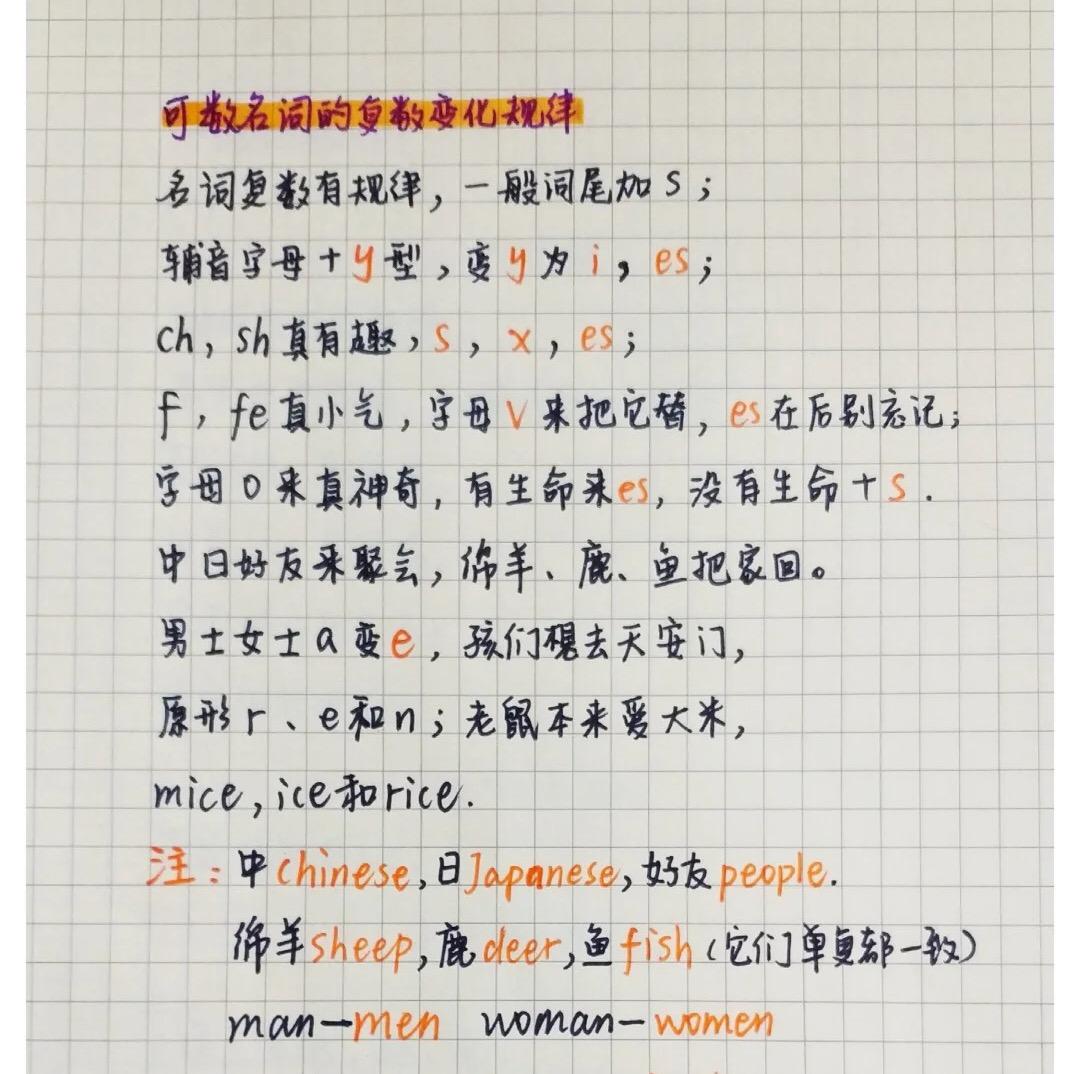 可数名词的复数变化规律
名词复数有规律，一般词尾加s；
辅音字母+y型，变y为i，es；
ch，sh真有趣，s，x，es；
f，fe真小气，字母v来把它替，es在后别忘记；
字母o来真神奇，有生命来es，没有生命+s.
中日好友来聚会，绵羊、鹿、鱼把家回。
男士女士a变e，孩们想去天安门，
原形r、e和n；老鼠本来爱大米，
mice，ice和rice.
注：中chinese，日Japanese，好友people.
绵羊sheep，鹿deer，鱼fish（它们单复都一致）
man—men woman—women